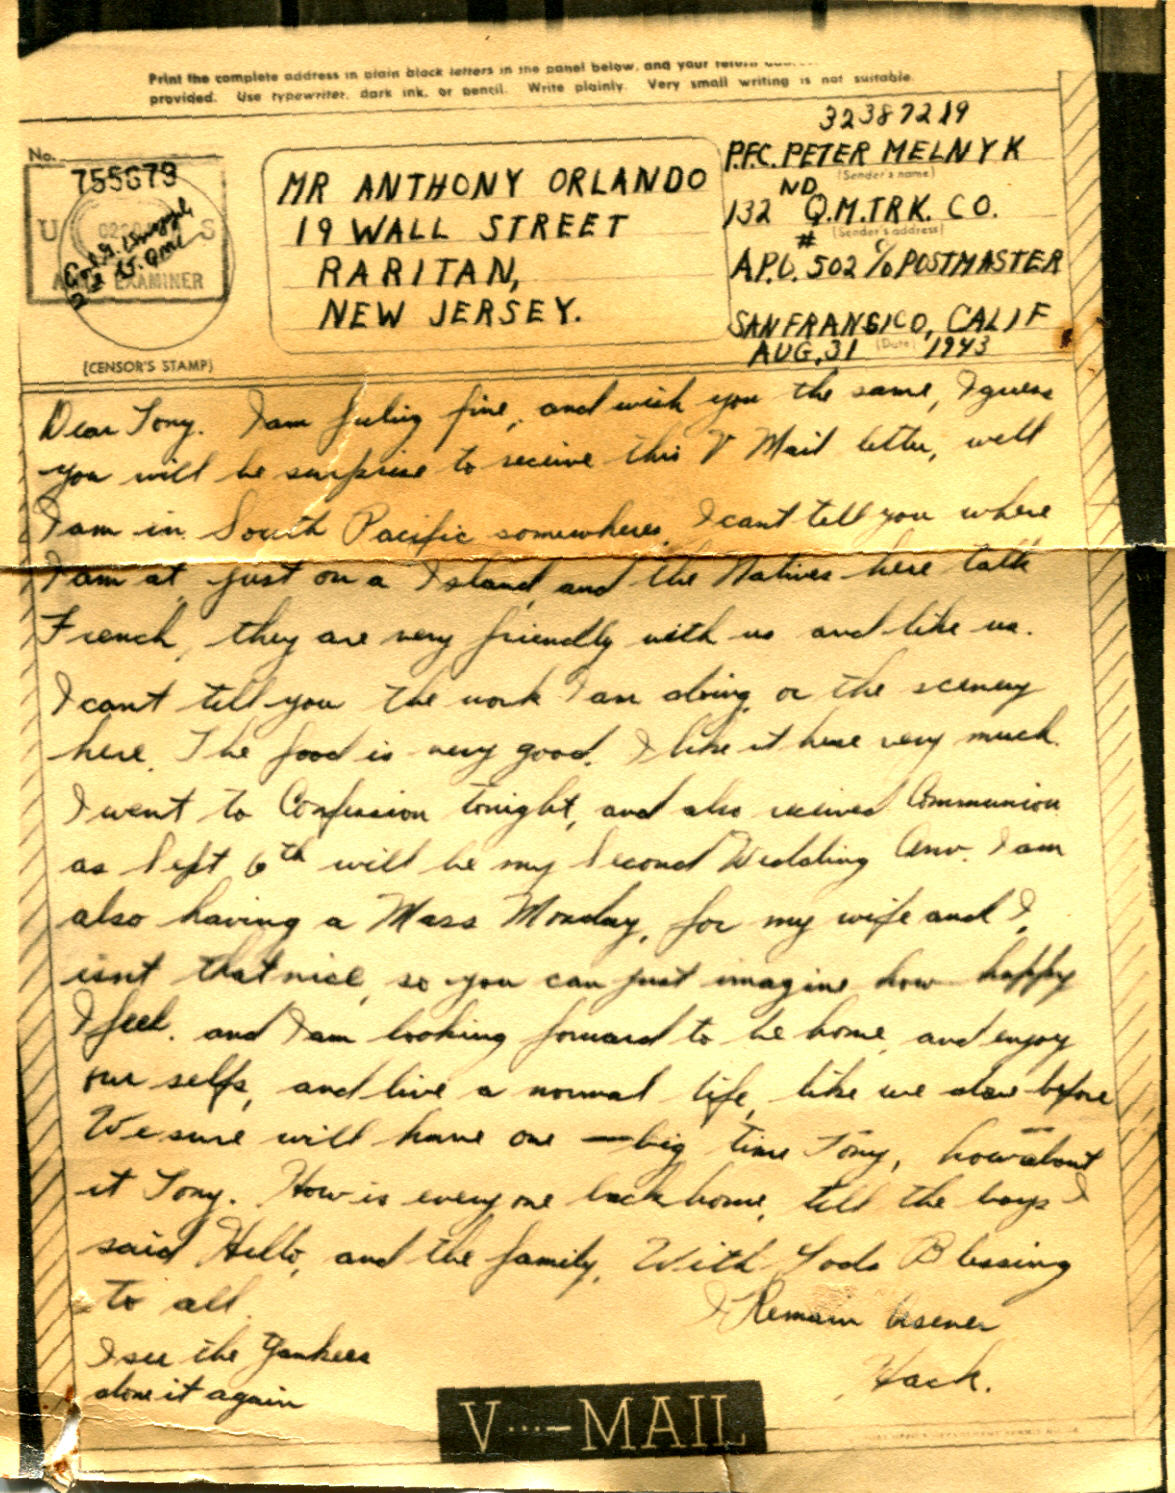 Print the complete address in plain black letters in the panel below, and your return
provided. Use typewriter, dark ink, or pencil. Write plainly. Very small writing is not suitable.
No.
755679
U S
EXAMINER
(CENSOR'S STAMP)
MR ANTHONY ORLANDO
19 WALL STREET
RARITAN,
NEW JERSEY.
32387219
P.F.C. PETER MELNYK
(Sender's name)
132 ND Q.M.TRK. CO.
(Sender's address)
A.P.O. # 502 c/o POSTMASTER
SAN FRANSICO, CALIF
AUG, 31 (Date) 1943
Dear Tony. I am feeling fine, and wish you the same, I guess
you will be surprise to receive this V Mail letter, well
I am in South Pacific somewheres, I cant tell you where
I am at, just on a Island, and the Natives here talk
French, they are very friendly with us and like us.
I cant tell you the work I am doing or the scenery
here. The food is very good. I like it here very much.
I went to Confession tonight, and also recived Communion
as Sept 6th will be my Second Wedding Anv. I am
also having a Mass Monday, for my wife and I,
isnt that nice, so you can just imagine how happy
I feel. and I am looking forward to be home, and enjoy
our selfs, and live a normal life, like we done before
We sure will have one big time Tony, how about
it Tony. How is everyone back home, tell the boys I
said Hello, and the family. With Gods Blessing
to all.
I Remain as ever
Hack.
I see the Yankees
done it again
V···-MAIL